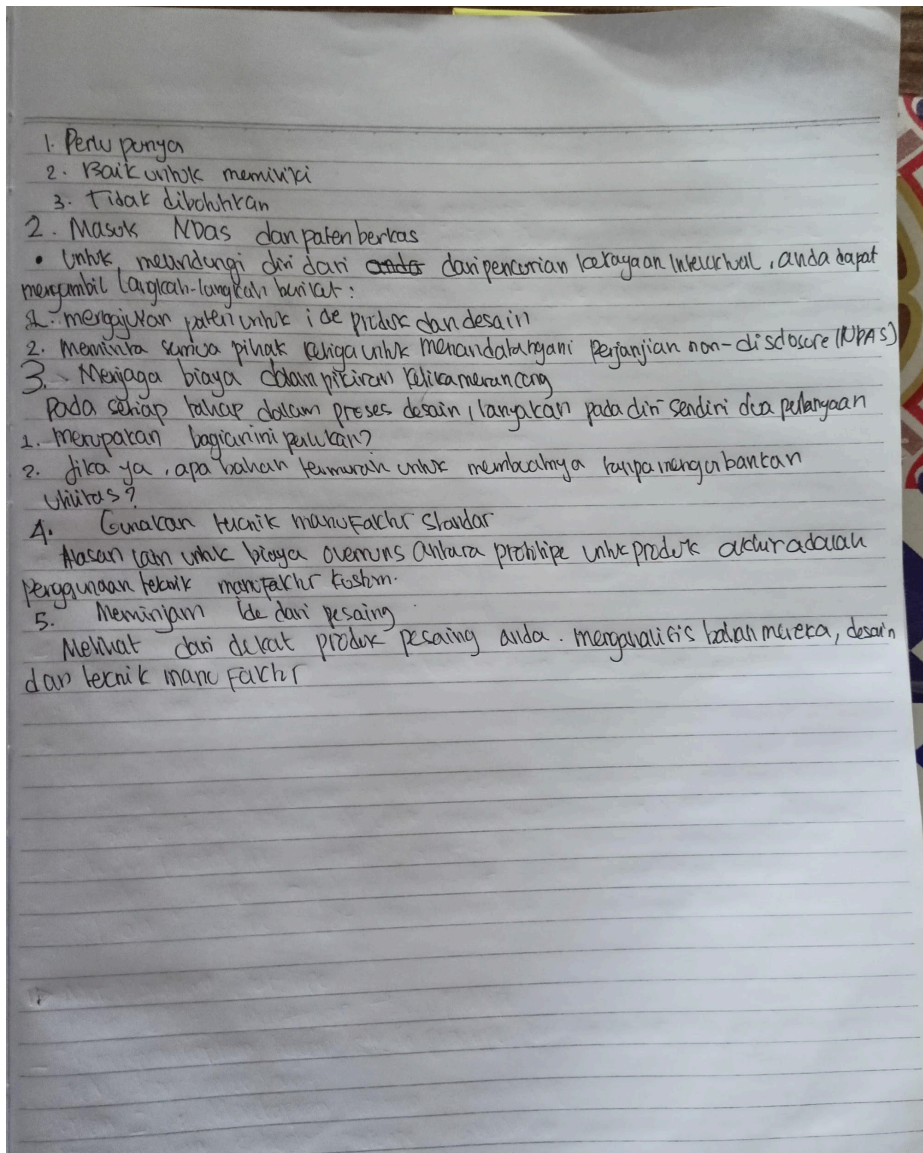 1. Perlu punya
2. Baik untuk memiliki
3. Tidak dibutuhkan
2. Masuk NDas dan paten berkas
• Untuk melindungi diri dari dari pencurian kekayaan Intelektual, anda dapat
mengambil langkah-langkah berikut:
1. mengajukan paten untuk ide produk dan desain
2. Meminta semua pihak ketiga untuk menandatangani Perjanjian non-disclosure (NDAS)
3. Menjaga biaya dalam pikiran ketika merancang
Pada setiap tahap dalam proses desain, tanyakan pada diri sendiri dua pertanyaan
1. merupakan bagian ini perlukan?
2. Jika ya, apa bahan termurah untuk membuatnya tanpa mengorbankan
utilitas?
4. Gunakan teknik manufaktur Standar
Alasan lain untuk biaya overruns antara prototipe untuk produk akhir adalah
penggunaan teknik manufaktur kustom.
5. Meminjam Ide dari pesaing
Melihat dari dekat produk pesaing anda. menganalisis bahan mereka, desain
dan teknik manufaktur